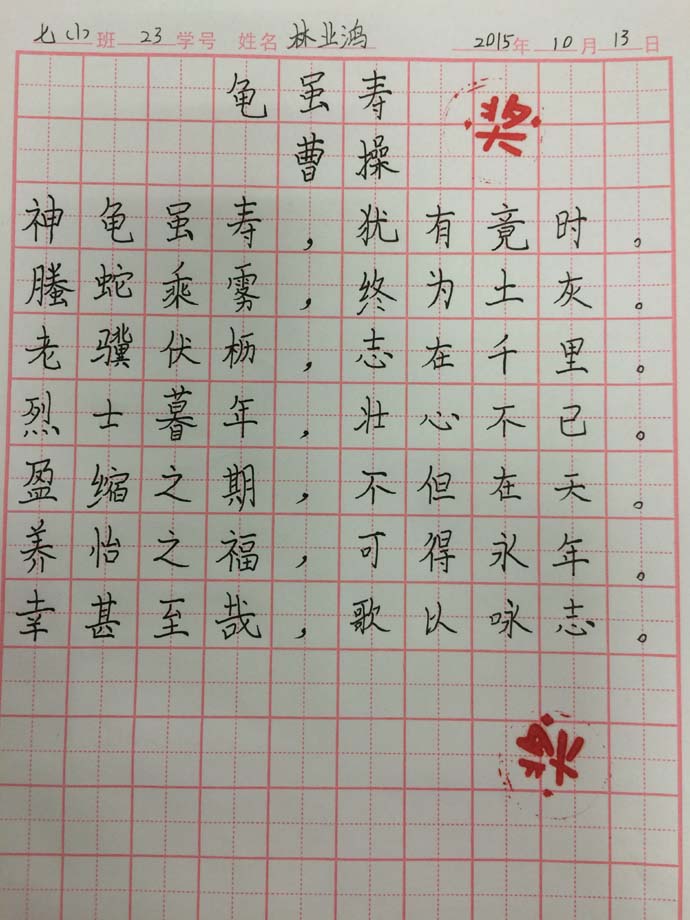 七(小)班 23 学号 姓名 林业鸿 2015年 10月 13日
龟虽寿
曹操
奖
神龟虽寿，犹有竟时。
螣蛇乘雾，终为土灰。
老骥伏枥，志在千里。
烈士暮年，壮心不已。
盈缩之期，不但在天。
养怡之福，可得永年。
幸甚至哉，歌以咏志。
奖